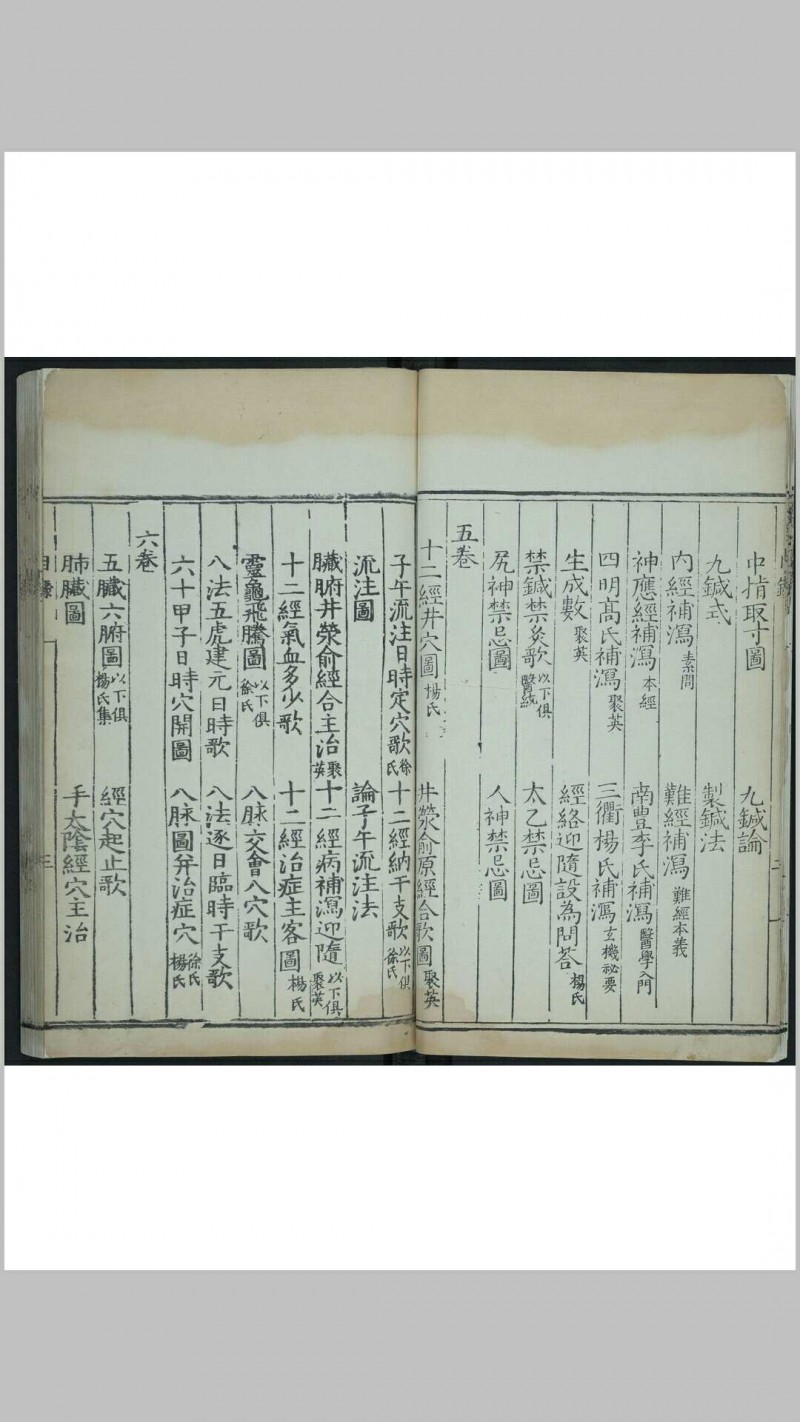 中指取寸圖 九鍼論
九鍼式 製鍼法
內經補瀉 素問 難經補瀉 難經本義
神應經補瀉 本經 南豊李氏補瀉 醫學入門
四明髙氏補瀉 聚英 三衢楊氏補瀉 玄機祕要
生成數 聚英 經絡迎隨設為問荅 楊氏
禁鍼禁灸歌 以下俱醫統 太乙禁忌圖
尻神禁忌圖 人神禁忌圖
五卷
十二經井穴圖 楊氏 井滎俞原經合歌圖 聚英
子午流注日時定穴歌 徐氏 十二經納干支歌 以下俱徐氏
流注圖 論子午流注法
臟腑井滎俞經合主治 聚英 十二經病補瀉迎隨 以下俱聚英
十二經氣血多少歌 十二經治症主客圖 楊氏
靈龜飛騰圖 以下俱徐氏 八脉交會八穴歌
八法五虎建元日時歌 八法逐日臨時干支歌
六十甲子日時穴開圖 八脉圖并治症穴 徐氏楊氏
六卷
五臟六腑圖 以下俱楊氏集 經穴起止歌
肺臟圖 手太陰經穴主治
目錄
三